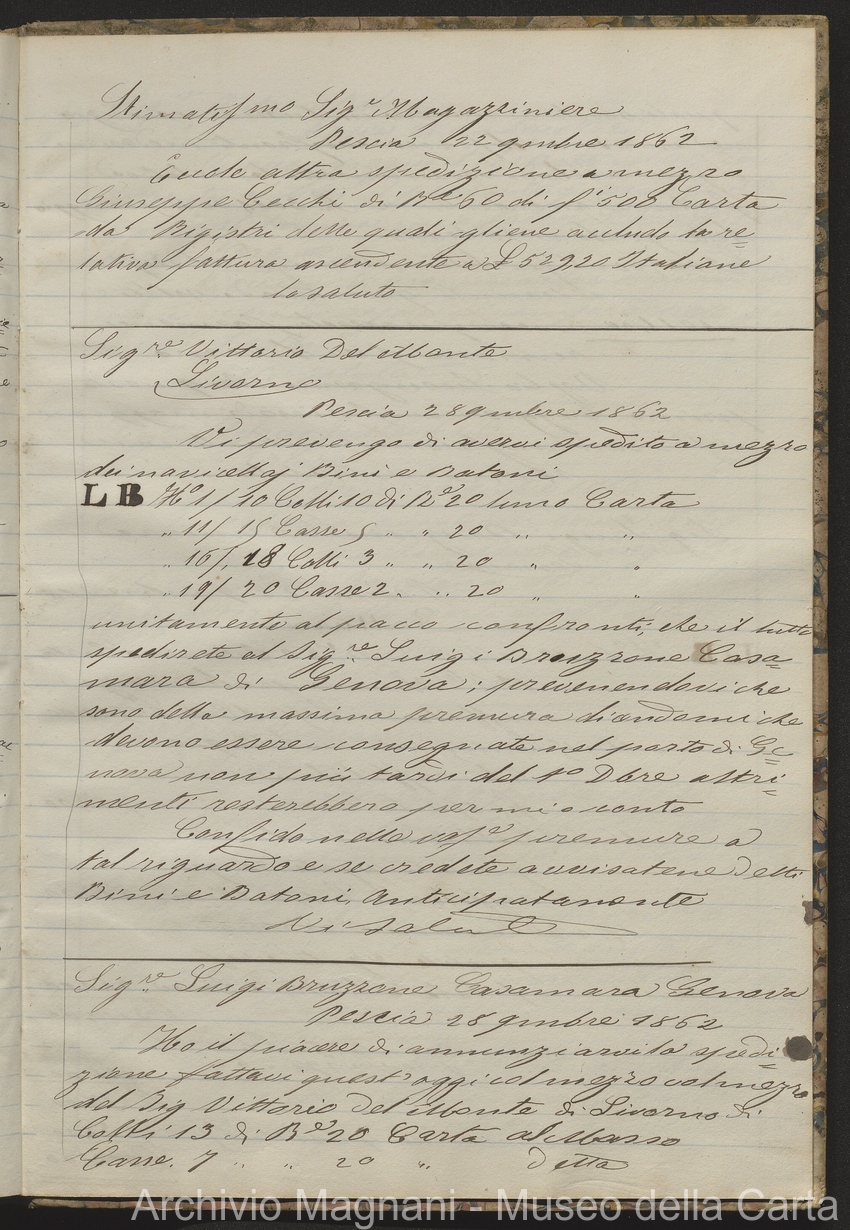 Stimatissmo Sigr Magazziniere
Pescia 22 9mbre 1862
Eccole altra spedizione a mezzo
Giuseppe Cecchi di Be 60 di fi 500 Carta
da Rigistri delle quali gliene accludo la re=
lativa fattura ascendente a £ 529,20 Italiane
la saluto
Sigre Vittorio Del Monte
Livorno
Pescia 28 9mbre 1862
Vi prevengo di avervi spedito a mezzo
dei navicellaj Bini e Batoni
LB No 1/10 Colli 10 di Be 20 Carta
" 11/15 Casse 5 " " 20 " "
" 16/18 Colli 3 " " 20 " "
" 19/20 Casse 2 " " 20 " "
unitamente al pacco confronti, che il tutto
spedirete al Sigre Luigi Bruzzone Casa=
mara di Genova; prevenendovi che
sono della massima premura diandomi che
devono essere consegnate nel porto di Ge=
nova non più tardi del 1o Dbre altri=
menti resterebbero per mio conto
Confido nelle premure a
tal riguardo e se credete avvisatene detti
Bini e Batoni, Anticipatamente
Vi Saluto
Sigre Luigi Bruzzone Casamara Genova
Pescia 28 9mbre 1862
Ho il piacere di annunziarvi la spedi=
zione fattavi quest'oggi col mezzo col mezzo
del Sig Vittorio Del Monte di Livorno di
Colli 13 di Be 20 Carta al Masso
Casse 7 " " 20 " Detta
Archivio Magnani - Museo della Carta